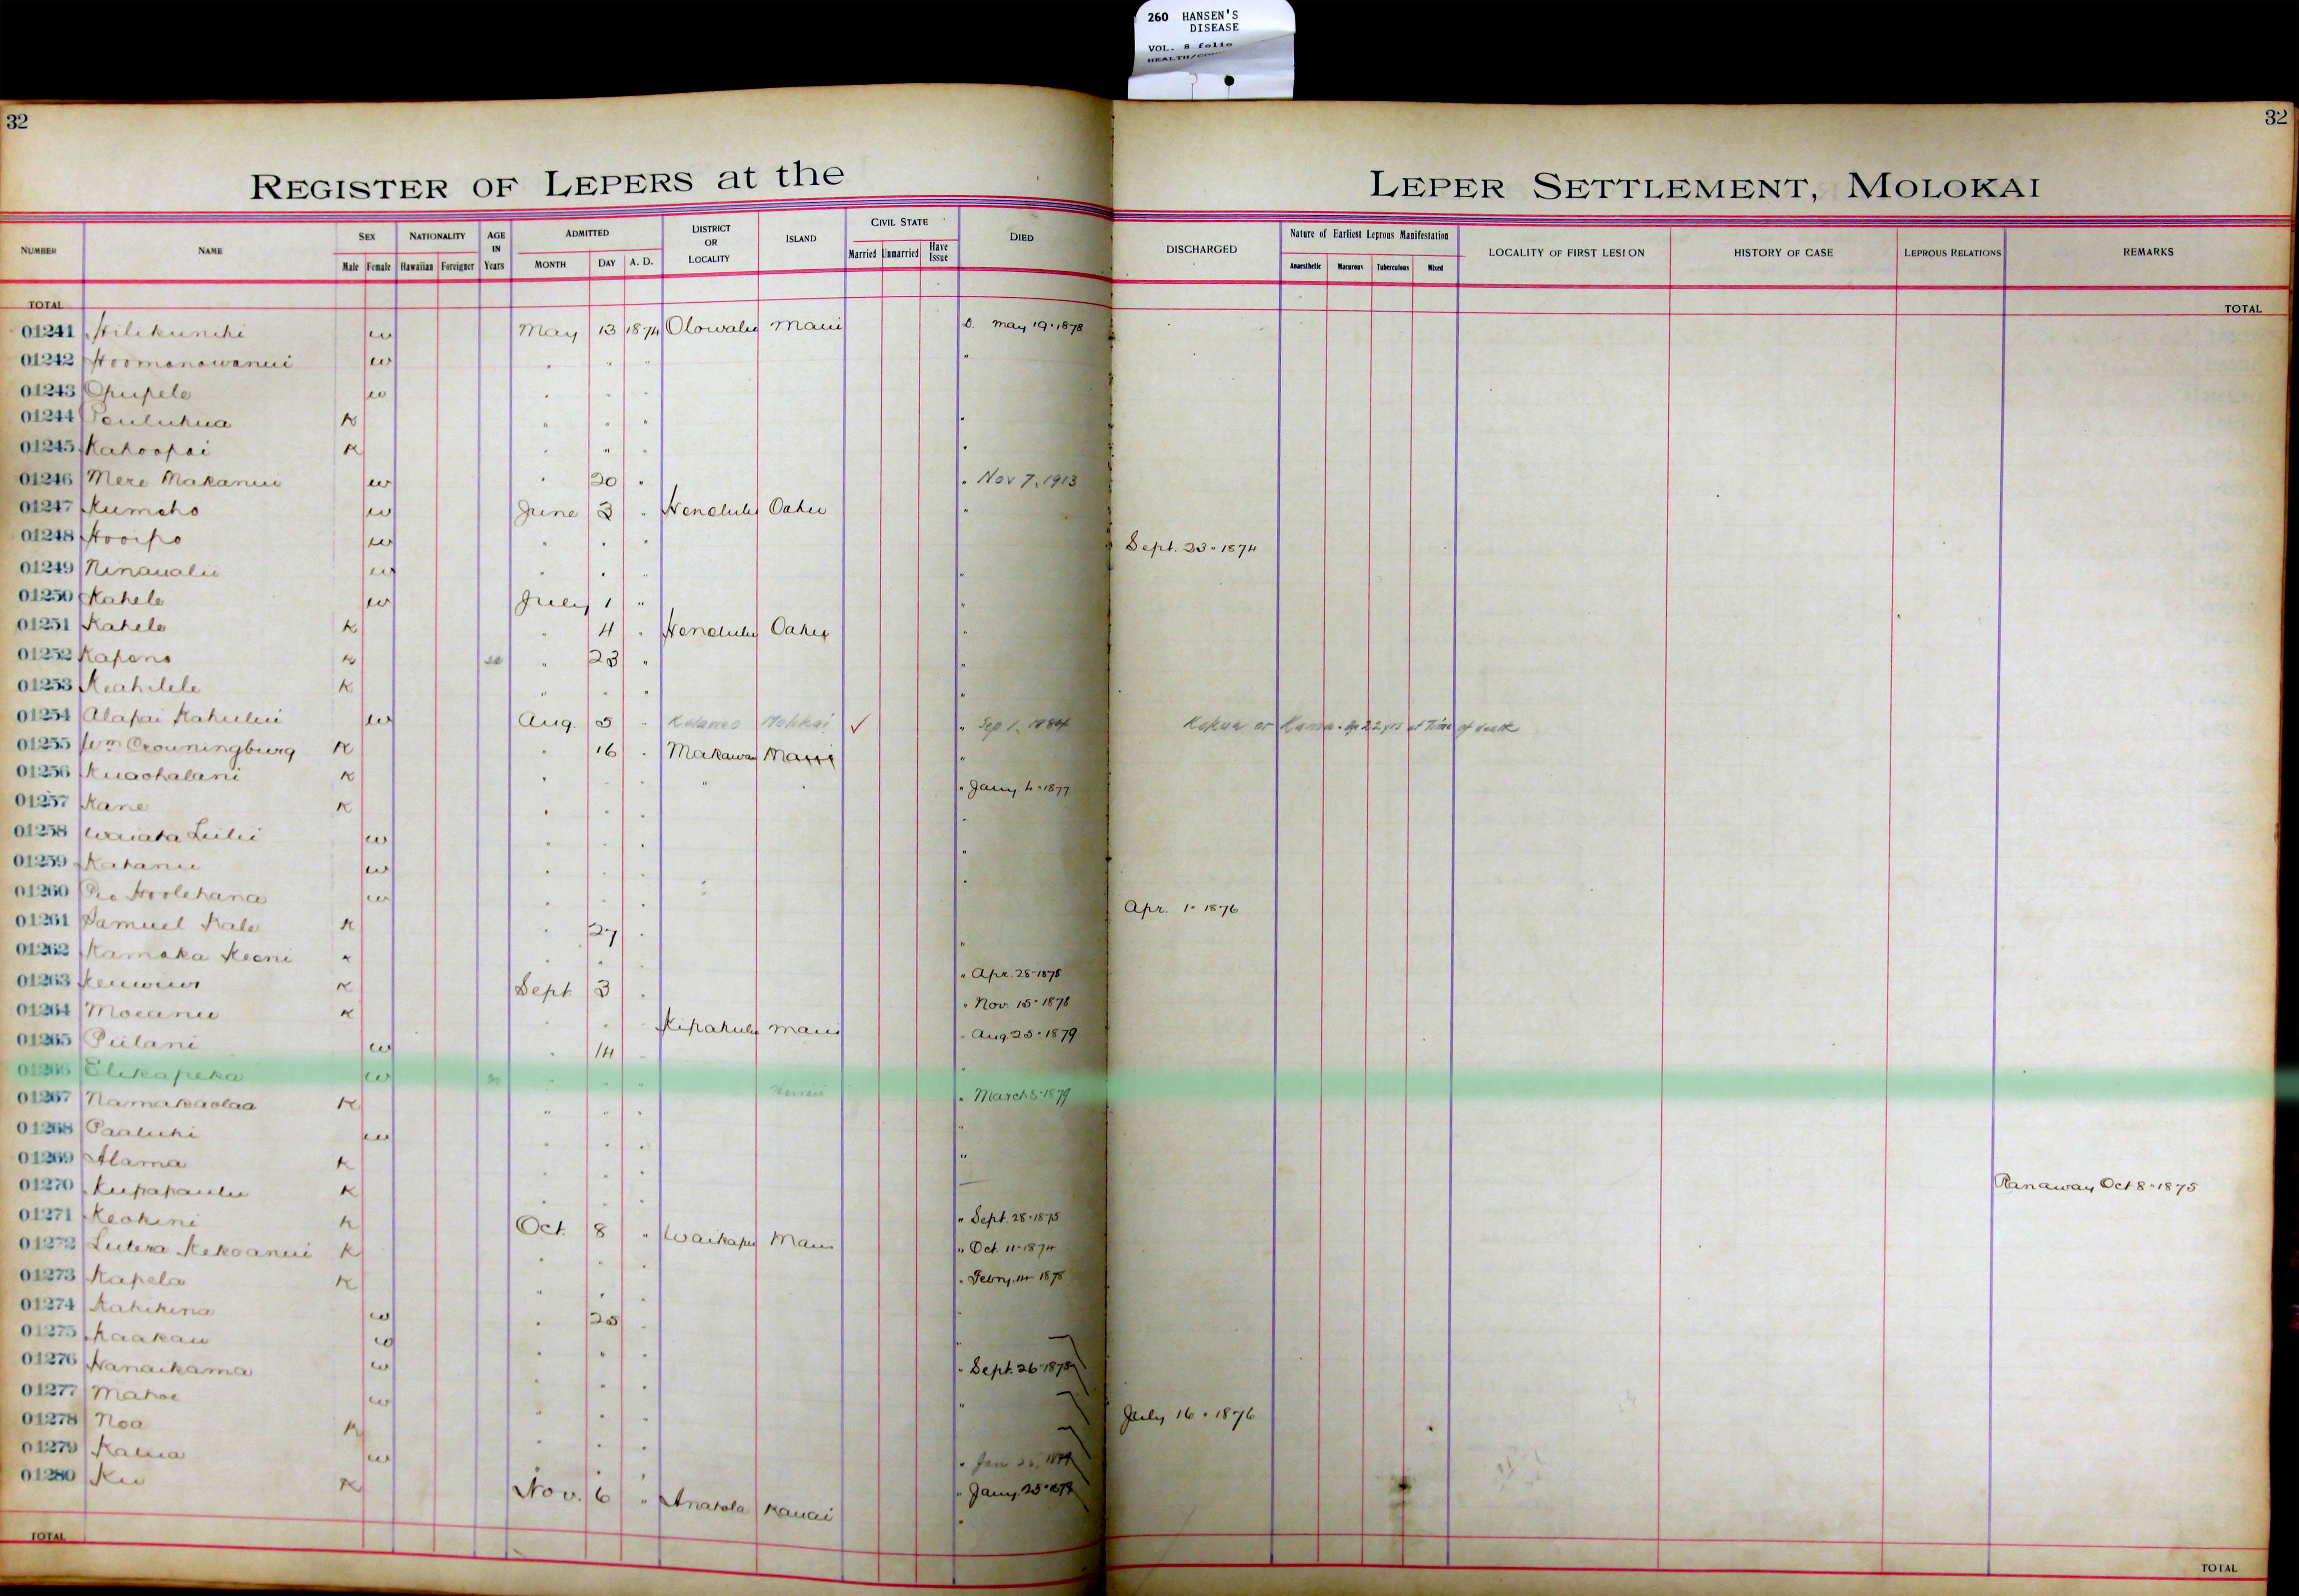 260 HANSEN'S
DISEASE
VOL. 8 folio
32
32
REGISTER OF LEPERS at the LEPER SETTLEMENT, MOLOKAI
NUMBER NAME SEX NATIONALITY AGE IN Years ADMITTED DISTRICT OR LOCALITY ISLAND CIVIL STATE DIED DISCHARGED Nature of Earliest Leprous Manifestation LOCALITY OF FIRST LESION HISTORY OF CASE LEPROUS RELATIONS REMARKS
Male Female Hawaiian Foreigner MONTH DAY A. D. Married Unmarried Have Issue Anaesthetic Macurous Tuberculous Mixed
TOTAL TOTAL
01241 Hilikunihi w May 13 1874 Olowalu Maui D. May 19 · 1878
01242 Hoomanawanui w " " " "
01243 Opupele w " " "
01244 Pauluhua K " " " "
01245 Kahoopai K " " " "
01246 Mere Makanui w " 20 " " Nov 7, 1913
01247 Kumeho w June 3 " Honolulu Oahu "
01248 Hooipo w " " " Sept. 23 · 1874
01249 Ninaualii w " " " "
01250 Kahele w July 1 " "
01251 Kahele K " 4 " Honolulu Oahu "
01252 Kapono K " 23 " "
01253 Keahilele K " " " "
01254 Alapai Kahului w Aug. 5 " Kalawao Molokai ✓ " Sep 1, 1884 Kokua or Kamaa. Age 22 yrs at Time of death
01255 Wm Crowningburg K " 16 " Makawao Maui "
01256 Kuaohalani K " " " " " " Jany. 4 · 1877
01257 Kane K " " " "
01258 Waiaka Luilii w " " " "
01259 Kahanu w " " " "
01260 Pio Hoolehana w " " " Apr. 1 · 1876
01261 Samuel Kale K " 27 " "
01262 Kamaka Keoni K " " " " Apr. 28 · 1878
01263 K Sept. 3 " " Nov. 15 · 1878
01264 Moeanu K " " " Kipahulu Maui " Aug 25 · 1879
01265 Piilani w " 14 " "
01266 Elikapeka w " " " Hawaii " March 8 · 1879
01267 Namakaolaa K " " " "
01268 Paaluhi w " " " "
01269 Alama K " " "
01270 Kupapaulu K " " " Ranaway Oct 8 · 1875
01271 Keokini K Oct. 8 " Waikapu Maui " Sept. 28 · 1875
01272 Lutera Kekoanui K " " " " Oct. 11 · 1874
01273 Kapela K " " " " Febry. 14 · 1878
01274 Kahikina w " 25 " "
01275 Kaakau w " " " "
01276 Nanaikama w " " " " Sept. 26 · 1878
01277 Mahoe w " " " "
01278 Noa K " " " July 16 · 1876
01279 Kalua w " " " " Jan 26,
01280 Ku K Nov. 6 " Anahola Kauai " Jany. 25 ·
TOTAL TOTAL